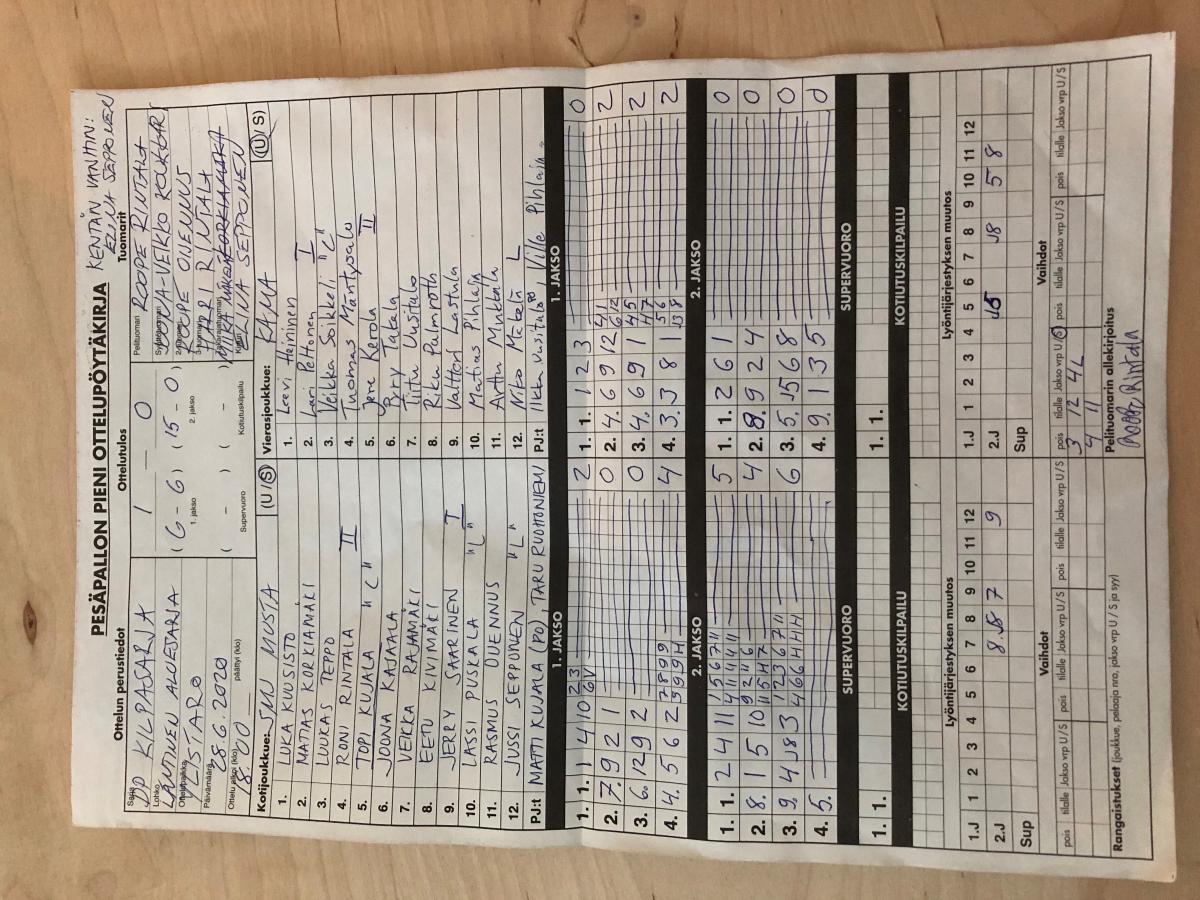 PESÄPALLON PIENI OTTELUPÖYTÄKIRJA
KENTÄN VANHIN:
ELINA SEPPONEN
Ottelun perustiedot
Ottelutulos
Tuomarit
Sarja
KILPASARJA
Lohko
LÄNTINEN ALUESARJA
Ottelupaikka
YLISTARO
Päivämäärä
28.6.2020
Ottelu alkoi (klo)
18.00
päättyi (klo)
1 – 0
(6 – 6) (15 – 0)
1. jakso
2. jakso
( – ) ( – )
Supervuoro
Kotiutuskilpailu
Pelituomari
ROOPE RINTALA
Syöttötuomari
2-tuomari
ROOPE OJENNUS
3-tuomari
HARRI RINTALA
SEPPONEN
Kotijoukkue: SMJ MUSTA (U / S)
1. LUKA KUUSISTO
2. MATIAS KORKIAMÄKI
3. LUUKAS TEPPO
4. RONI RINTALA II
5. TOPI KUJALA "C"
6. JOONA KAJAALA
7. VEIKKA RAJAMÄKI
8. EETU KIVIMÄKI
9. JERRY SAARINEN I
10. LASSI PUSKALA "L"
11. RASMUS OJENNUS
12. JUSSI SEPPONEN "L"
PJ:t MATTI KUJALA (PO), TARU RUOHONIEMI
Vierasjoukkue: KAMA (U / S)
1. Leevi Heininen
2. Lari Peltonen I
3. Veikka Seikkeli "C"
4. Tuomas Mäntysalo
5. Jere Korola II
6. Pyry Takala
7. Tiitu Uusitalo
8. Riku Palmroth
9. Valtteri Lastula
10. Matias Pihlaja
11. Arttu Mukkala
12. Niko Mäkelä L
PJ:t Ilkka Uusitalo, Ville Pihlaja
1. JAKSO
1. 1. 1 4 10 2 3 2
2. 7. 9 2 1 0
3. 6. 12 9 2 0
4. 4. 5 6 2 4
1. JAKSO
1. 1. 1 2 3 0
2. 4 6 9 12 2
3. 4. 6 9 1 2
4. 3. 3 8 1 2
2. JAKSO
1. 1. 2 4 11 5
2. 8. 1 5 10 4
3. 9. 4 J8 3 6
4. 5.
2. JAKSO
1. 1. 2 6 1 0
2. 8. 9 2 4 0
3. 5. J5 6 8 0
4. 9. 1 3 5 0
SUPERVUORO
1. 1.
SUPERVUORO
1. 1.
KOTIUTUSKILPAILU
KOTIUTUSKILPAILU
Lyöntijärjestyksen muutos
1.J 1 2 3 4 5 6 7 8 9 10 11 12
2.J 8 J8 7 9
Sup
Lyöntijärjestyksen muutos
1.J 1 2 3 4 5 6 7 8 9 10 11 12
2.J J5 J8 5 8
Sup
Vaihdot
pois tilalle Jakso vrp U / S pois tilalle Jakso vrp U / S pois tilalle Jakso vrp U / S
Vaihdot
pois tilalle Jakso vrp U / S pois tilalle Jakso vrp U / S pois tilalle Jakso vrp U / S
3 12 4L
4 11
Rangaistukset (joukkue, pelaaja nro, jakso vrp U / S ja syy)
Pelituomarin allekirjoitus
Roope Rintala